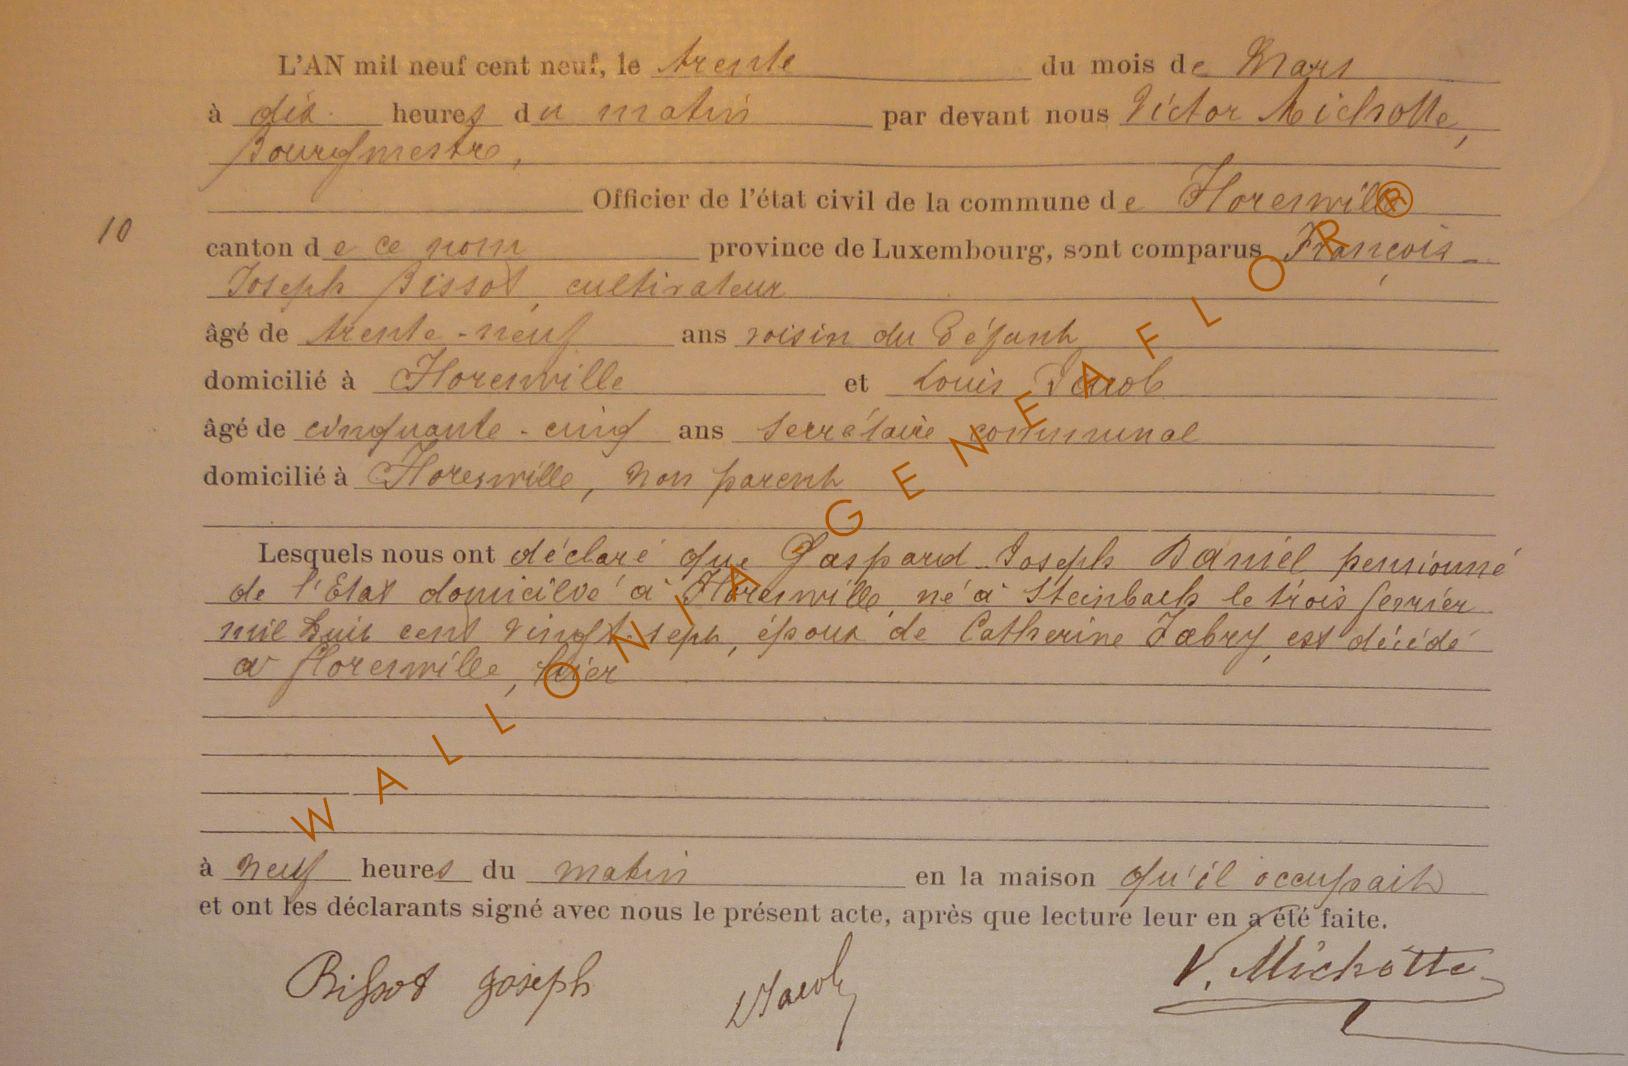 L'AN mil neuf cent neuf, le trente du mois de Mars
à dix heures du matin par devant nous Victor Michotte,
Bourgmestre,
Officier de l'état civil de la commune de Florenville
10
canton de ce nom province de Luxembourg, sont comparus François
Joseph Bissot, cultivateur
âgé de trente-neuf ans voisin du défunt
domicilié à Florenville et Louis Jacob
âgé de cinquante-cinq ans secrétaire communal
domicilié à Florenville, non parent
Lesquels nous ont déclaré que Gaspard Joseph Daniel pensionné
de l'Etat domicilié à Florenville, né à Steinbach le trois février
mil huit cent vingt-sept, époux de Catherine Fabry, est décédé
à Florenville, hier
à neuf heures du matin en la maison qu'il occupait
et ont les déclarants signé avec nous le présent acte, après que lecture leur en a été faite.
Bissot Joseph LJacob V. Michotte
WALLONIA GENEAFLOR®